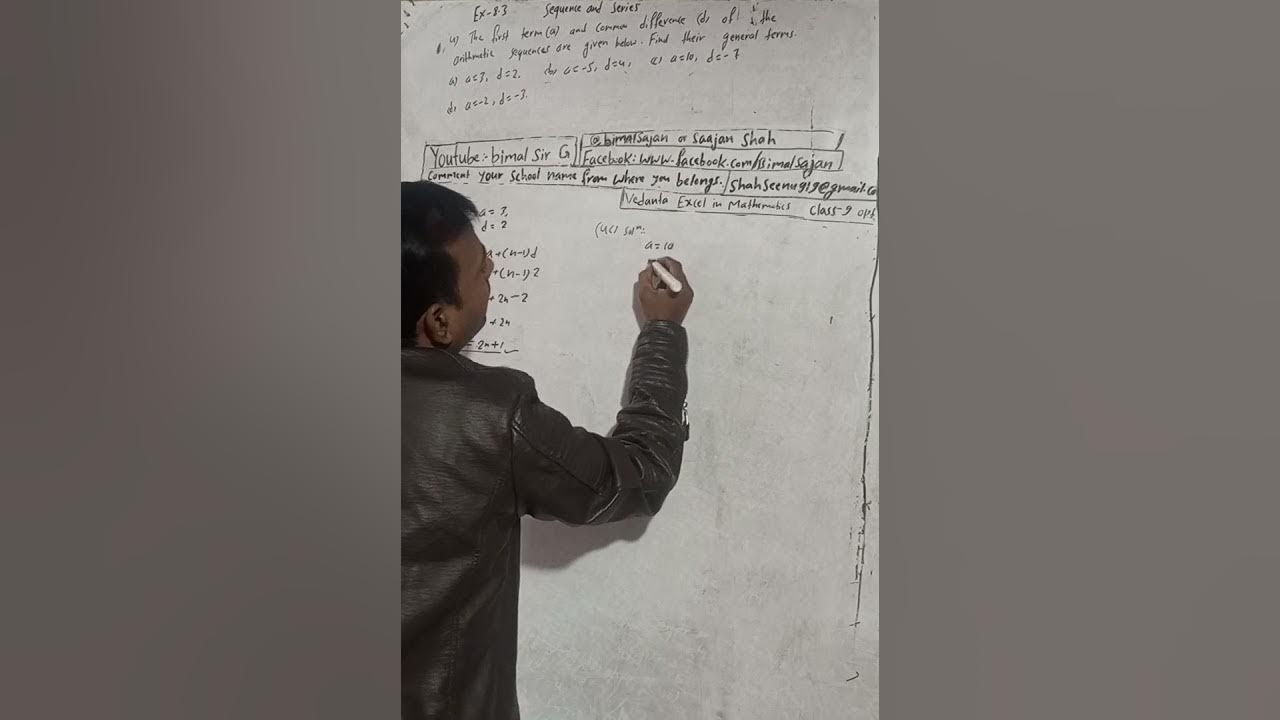 Ex-8.3 Sequence and Series
4) The first term (a) and common difference (d) of the
arithmetic sequences are given below. Find their general terms.
a) a=3, d=2. (b) a=-5, d=4, (c) a=10, d=-7
d) a=-2, d=-3.
Youtube:- bimal Sir G
@bimalsajan or Saajan Shah
Facebook: www.facebook.com/
Comment your School name from where you belongs.
Vedanta Excel in Mathematics Class-9 opt
a=3,
d=2
a+(n-1)d
+(n-1)2
+2n-2
+2n
= 2n+1
(4c) Solⁿ:
a=10